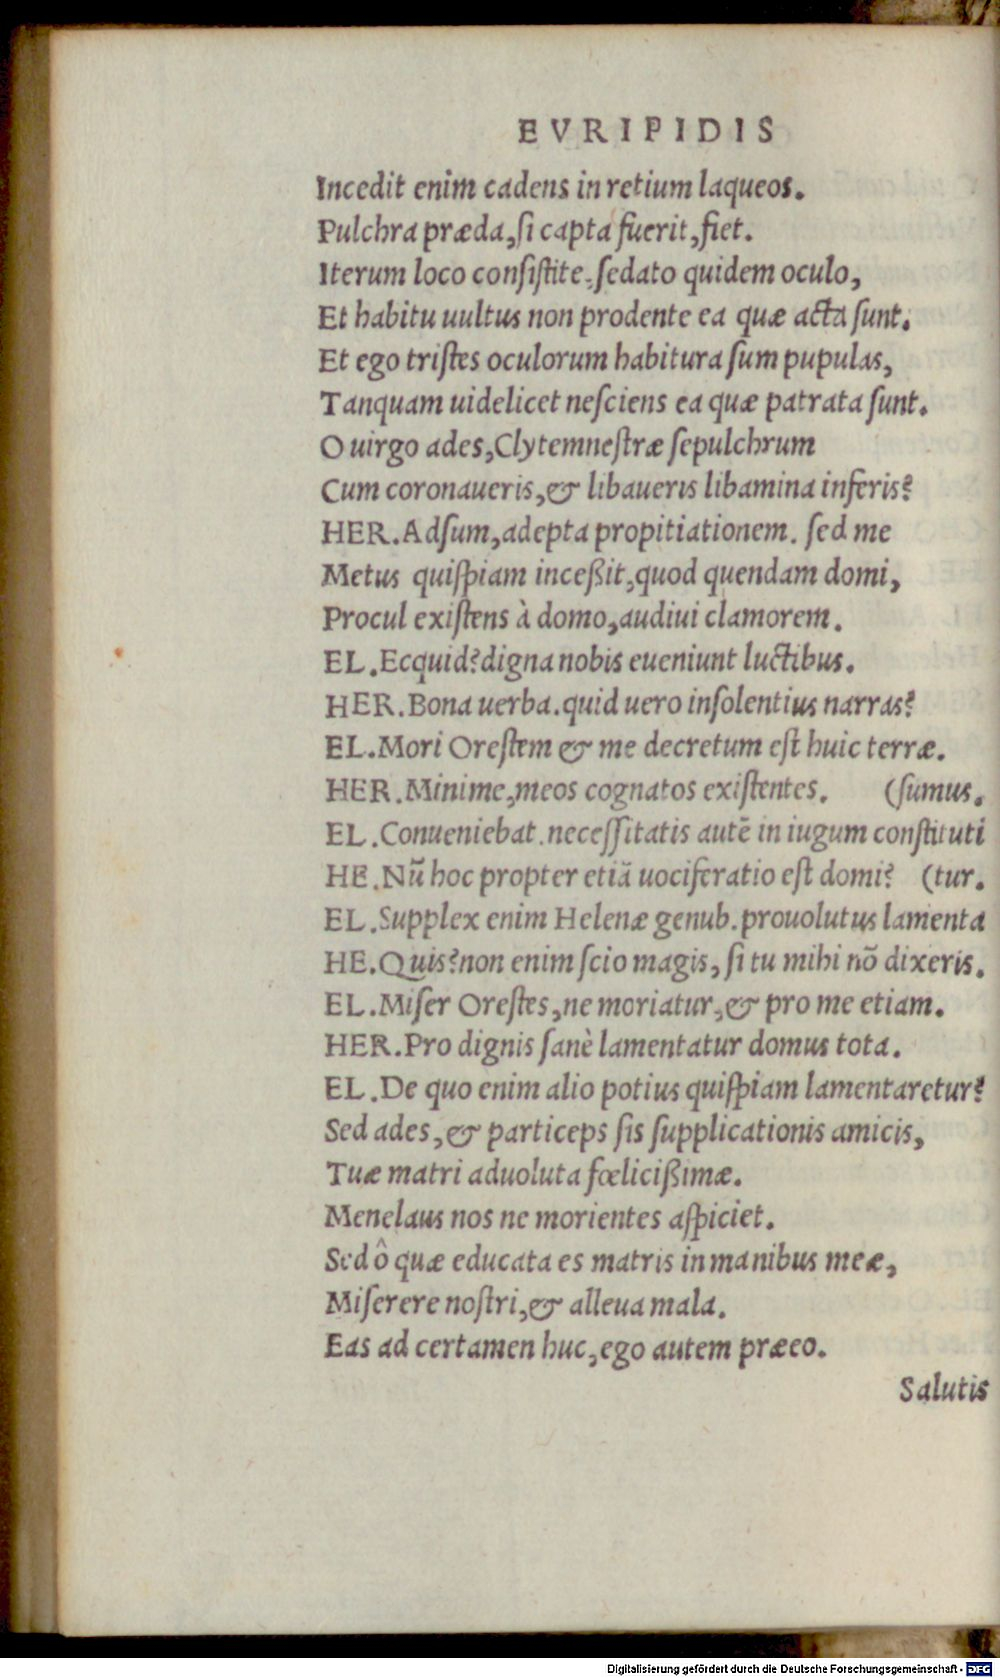 EVRIPIDIS
Incedit enim cadens in retium laqueos.
Pulchra præda, si capta fuerit, fiet.
Iterum loco consistite, sedato quidem oculo,
Et habitu uultus non prodente ea quæ acta sunt.
Et ego tristes oculorum habitura sum pupulas,
Tanquam uidelicet nesciens ea quæ patrata sunt.
O uirgo ades, Clytemnestræ sepulchrum
Cum coronaueris, & libaueris libamina inferis?
HER. Adsum, adepta propitiationem. sed me
Metus quispiam inceßit, quod quendam domi,
Procul existens à domo, audiui clamorem.
EL. Ecquid? digna nobis eueniunt luctibus.
HER. Bona uerba. quid uero insolentius narras?
EL. Mori Orestem & me decretum est huic terræ.
HER. Minime, meos cognatos existentes. (sumus.
EL. Conueniebat. necessitatis autē in iugum constituti
HE. Nū hoc propter etiā uociferatio est domi? (tur.
EL. Supplex enim Helenæ genub. prouolutus lamenta
HE. Quis? non enim scio magis, si tu mihi nō dixeris.
EL. Miser Orestes, ne moriatur, & pro me etiam.
HER. Pro dignis sanè lamentatur domus tota.
EL. De quo enim alio potius quispiam lamentaretur?
Sed ades, & particeps sis supplicationis amicis,
Tuæ matri aduoluta fœlicißimæ.
Menelaus nos ne morientes aspiciet.
Sed ô quæ educata es matris in manibus meæ,
Miserere nostri, & alleua mala.
Eas ad certamen huc, ego autem præeo.
Salutis
Digitalisierung gefördert durch die Deutsche Forschungsgemeinschaft - DFG